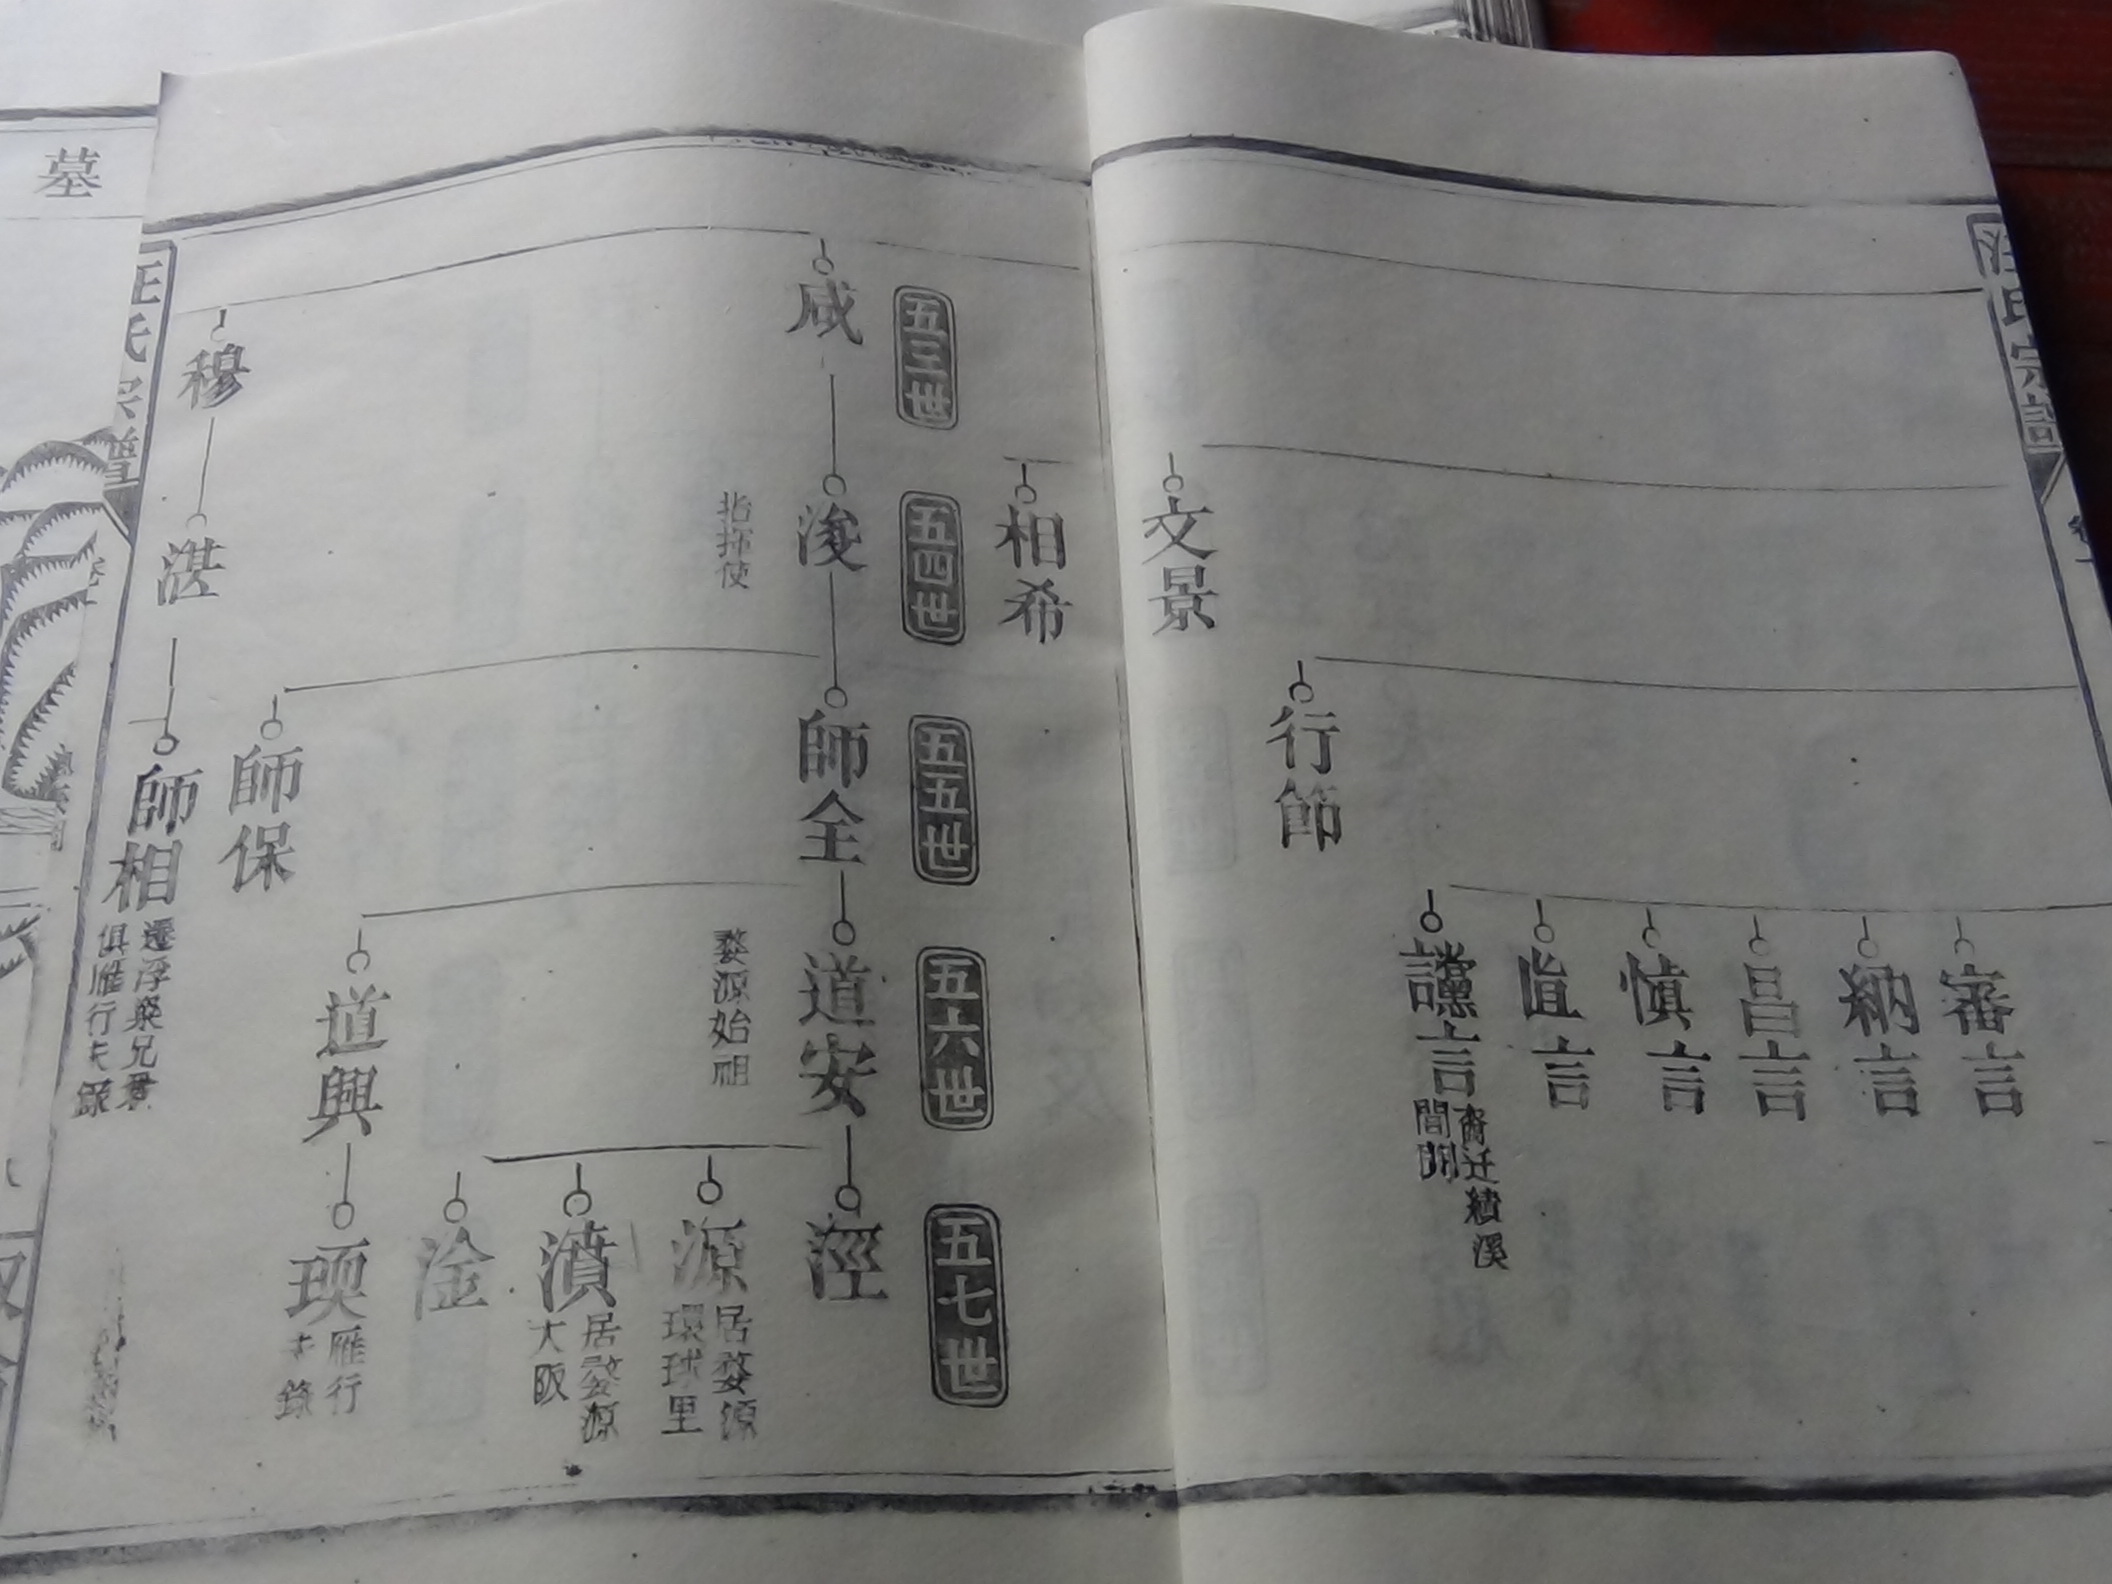 汪氏宗譜
審言
納言
昌言
慎言
直言
讜言
裔迁績溪
間閞
行節
文景
相希
五三世
五四世
五五世
五六世
五七世
咸
浚
師全
道安
涇
指揮使
婺源始祖
源
居婺源
環球里
濆
居婺源
大阪
淦
師保
道興
瑌
雁行
失錄
穆
湛
師相
遷浮梁兄弟
俱雁行失錄
汪氏宗譜
墓